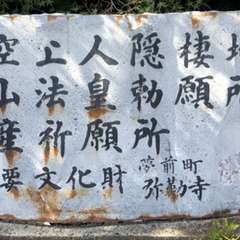 空上人隠棲地
山法皇勅願所
産祈願所
要文化財
夢前町
弥勒寺